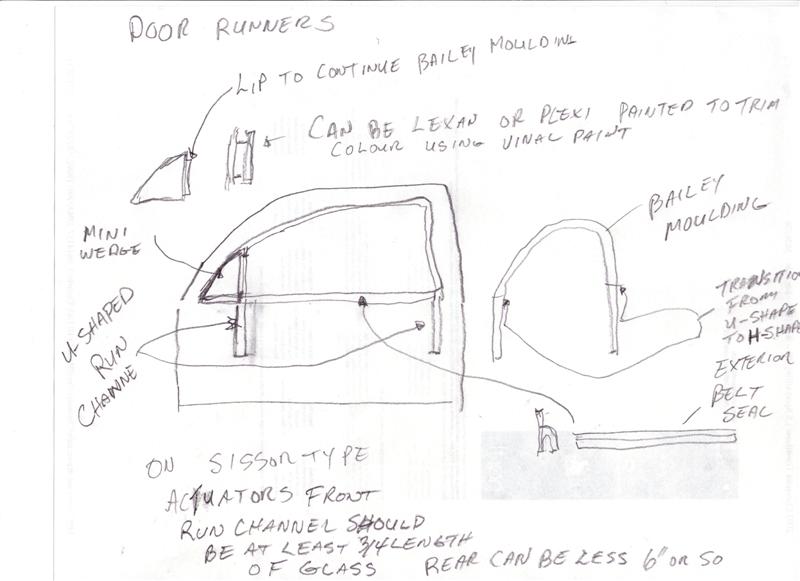 DOOR RUNNERS
LIP TO CONTINUE BAILEY MOULDING
CAN BE LEXAN OR PLEXI PAINTED TO TRIM
COLOUR USING VINAL PAINT
MINI
WEDGE
BAILEY
MOULDING
U-SHAPED
RUN
CHANNE
TRANSITION
FROM
U-SHAPE
TO H-SHAPE
EXTERIOR
BELT
SEAL
ON SISSOR TYPE
ACTUATORS FRONT
RUN CHANNEL SHOULD
BE AT LEAST 3/4 LENGTH
OF GLASS REAR CAN BE LESS 6" OR SO